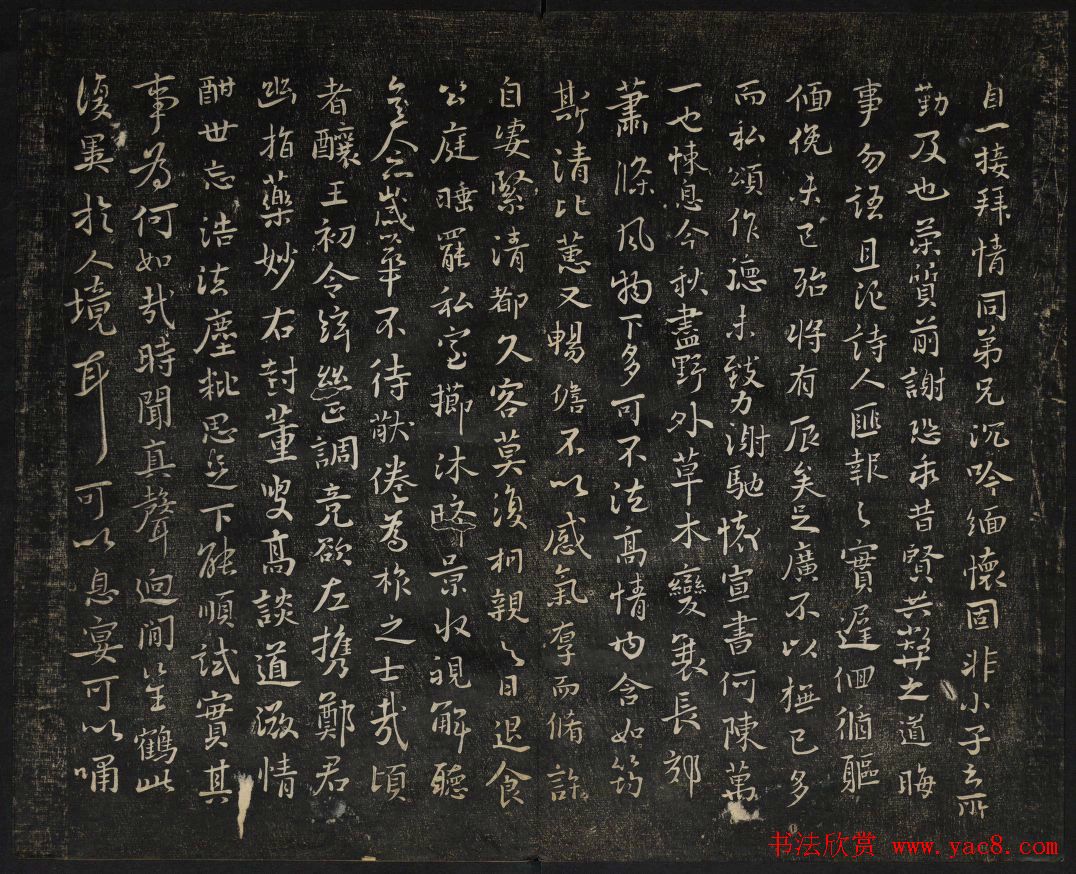 自一接拜情同弟兄沉吟緬懷固非小子之所
勤及也蒙質前謝恐乖昔賢共弊之道晦
事勿語且泥詩人匪報之實遲佪循軀
俛未已殆將有辰矣足廣不以撫已多
而私頌作德未致力謝馳懷宣書何陳萬
一也悚息今秋盡野外草木變衰長郊
蕭條風物下多可不法高情内含如筠
斯清比蕙又暢儋不以感氣序而脩詐
自婁緊清都久客莫復相親之目退食
公庭睡罷私室擲沐晞景收視解聽
歲華不待猷倦為旅之士哉頃
者釀王初令絲正調竞欲左携鄭君
幽指藥妙右封董叟高談道激情
酣世忘浩法塵秕思足下能順試實其
事為何如哉時聞真聲迥澗笙鶴此
復異於人境耳可以息宴可以嘯
书法欣赏 www.yac8.com